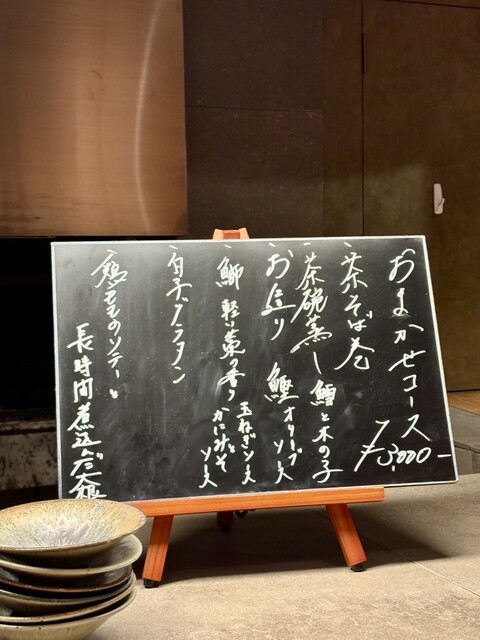 おまかせコース
¥3,000-
、茶そば巻
、茶碗蒸し 鱈と木の子
、お造り 鰹 オリーブソース
、鰤 軽い藁の香り 玉ねぎソース
かにみそソース
、白子グラタン
、鶏モモのソテーと
長時間煮込んだ大根